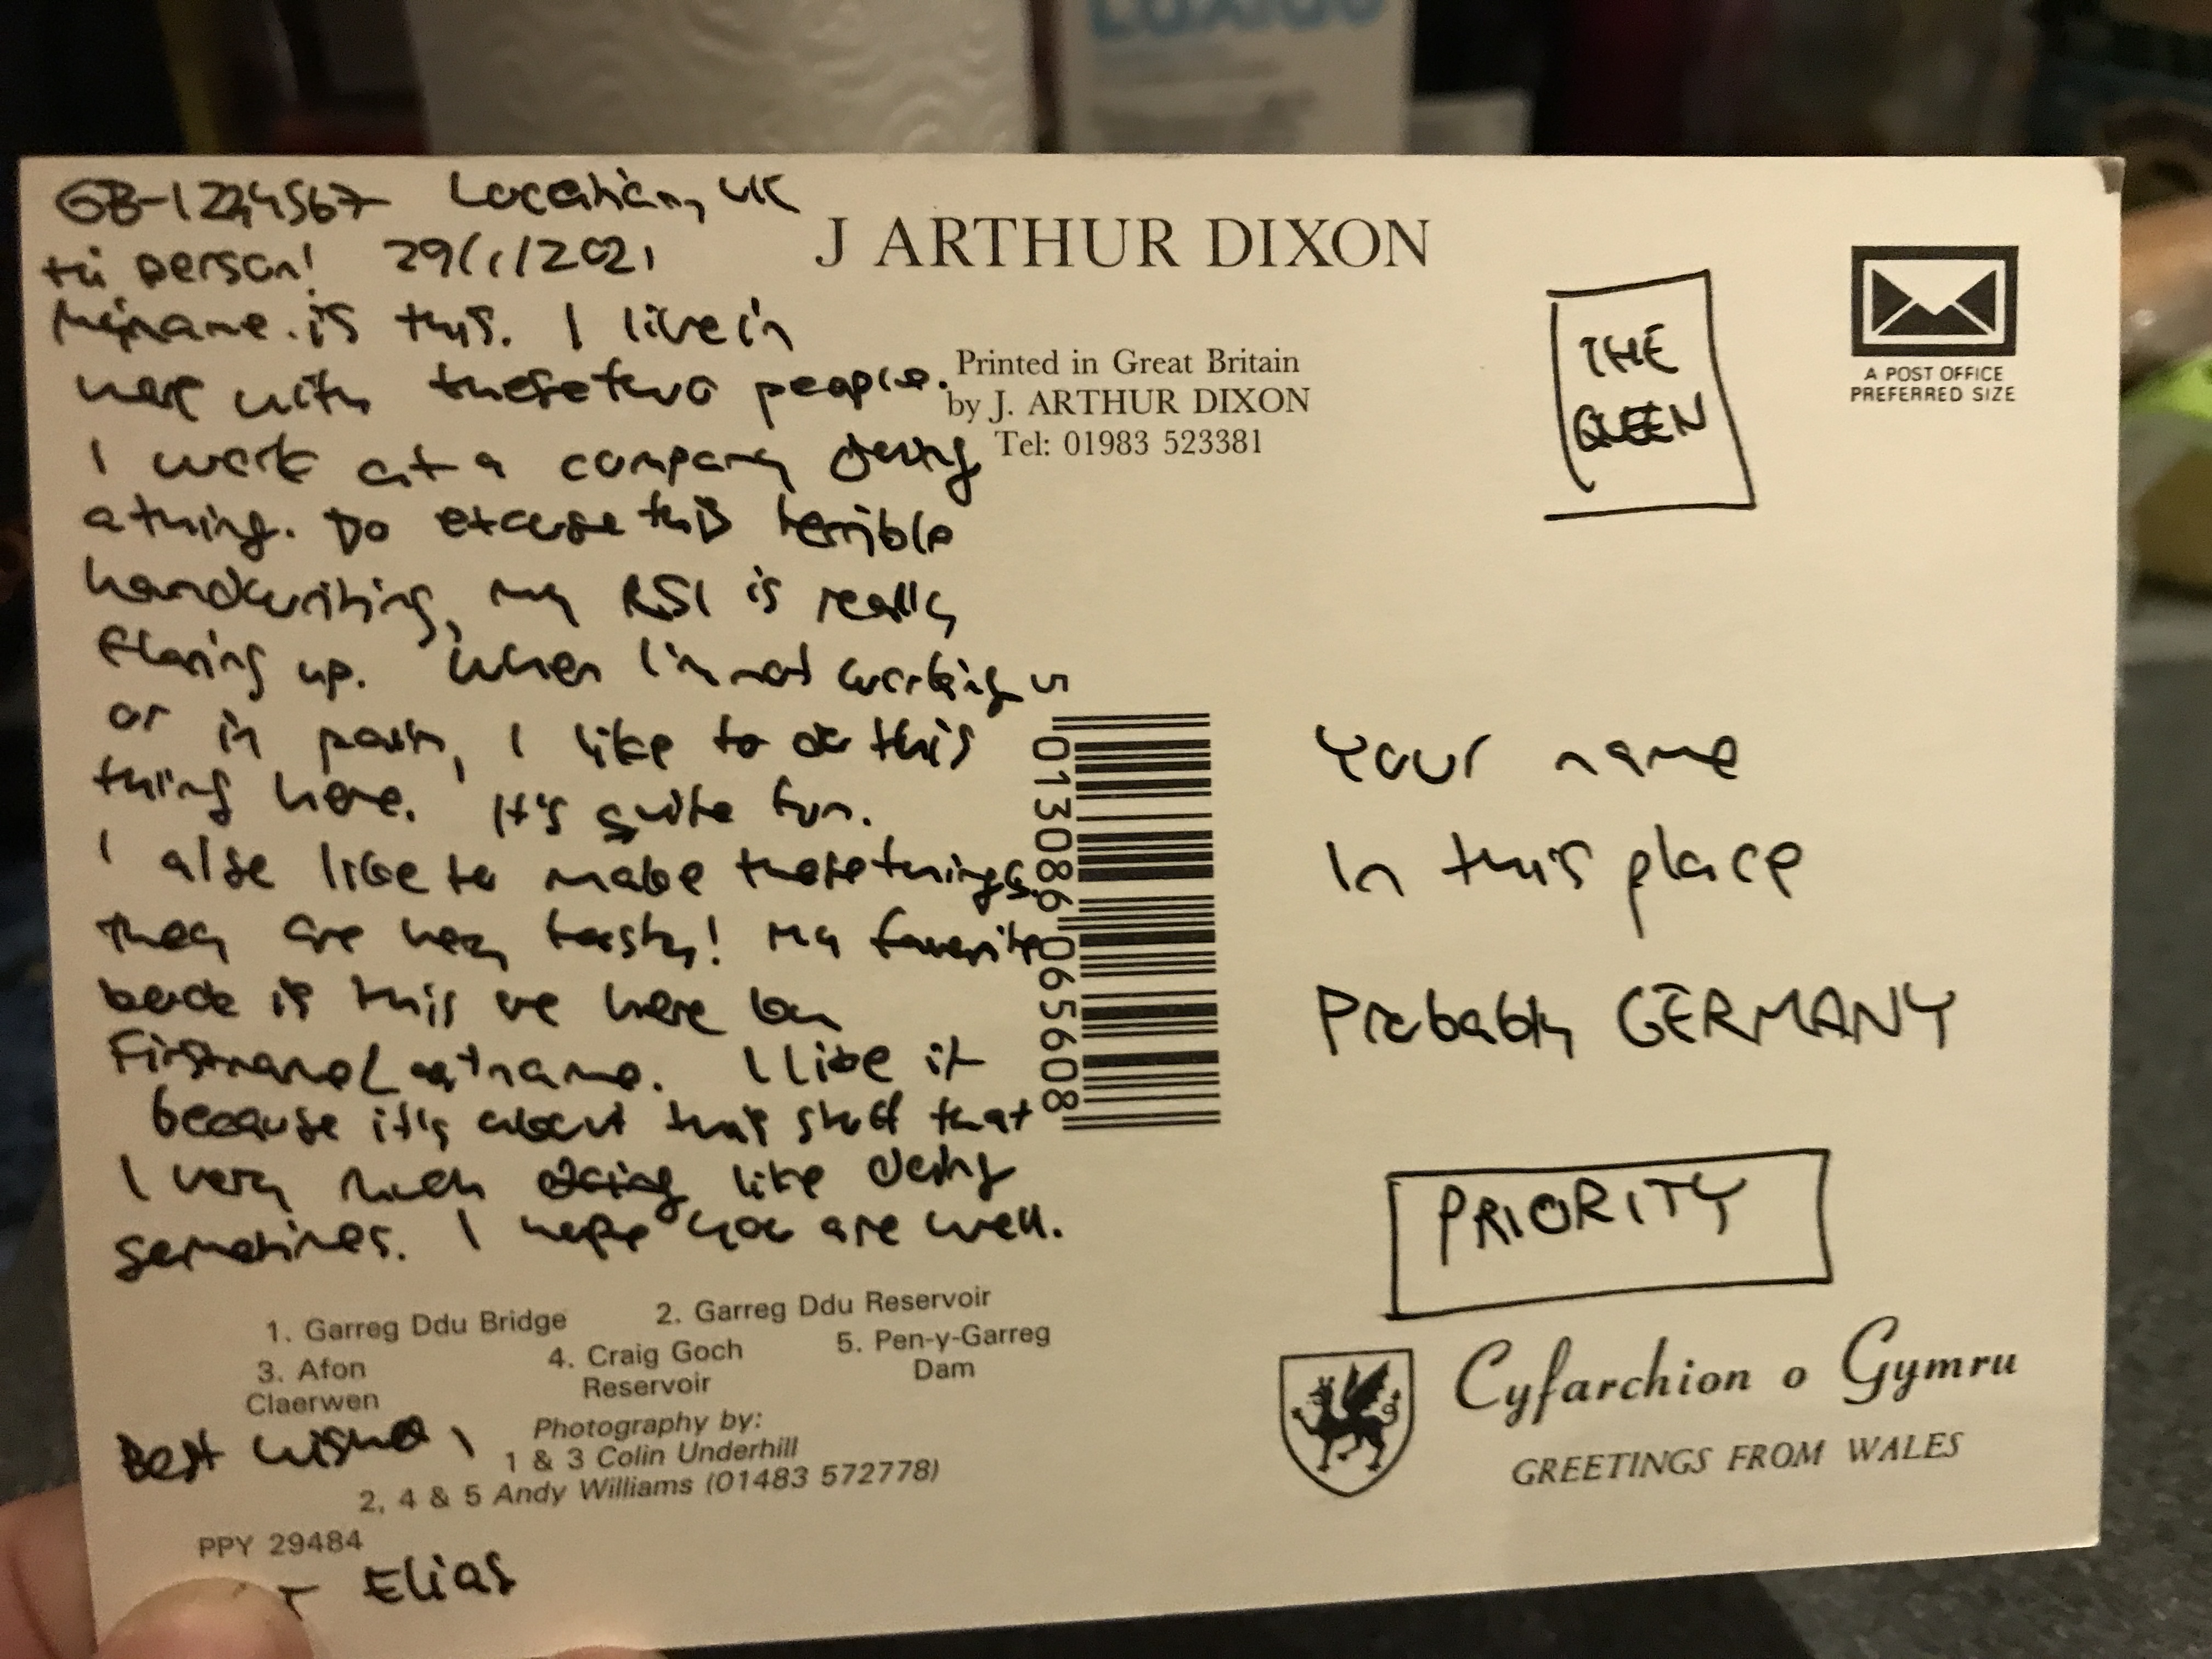 GB-1234567 Location, UK
Hi person! 29/1/2021
My name is this. I live in
here with these two people.
I work at a company doing
a thing. Do excuse this terrible
handwriting, my RSI is really
flaring up. When I'm not working
or in pain, I like to do this
thing here. It's quite fun.
I also like to make these things.
They are very tasty! My favorite
book is this one here by
Firstname Lastname. I like it
because it's about this stuff that
I very much doing like doing
sometimes. I hope you are well.
1. Garreg Ddu Bridge 2. Garreg Ddu Reservoir
3. Afon Claerwen
4. Craig Goch Reservoir
5. Pen-y-Garreg Dam
Photography by:
1 & 3 Colin Underhill
2, 4 & 5 Andy Williams (01483 572778)
Best wishes,
PPY 29484
Elias
J ARTHUR DIXON
Printed in Great Britain
by J. ARTHUR DIXON
Tel: 01983 523381
5 013086 065608
THE
QUEEN
A POST OFFICE
PREFERRED SIZE
Your name
In this place
Probably GERMANY
PRIORITY
Cyfarchion o Gymru
GREETINGS FROM WALES